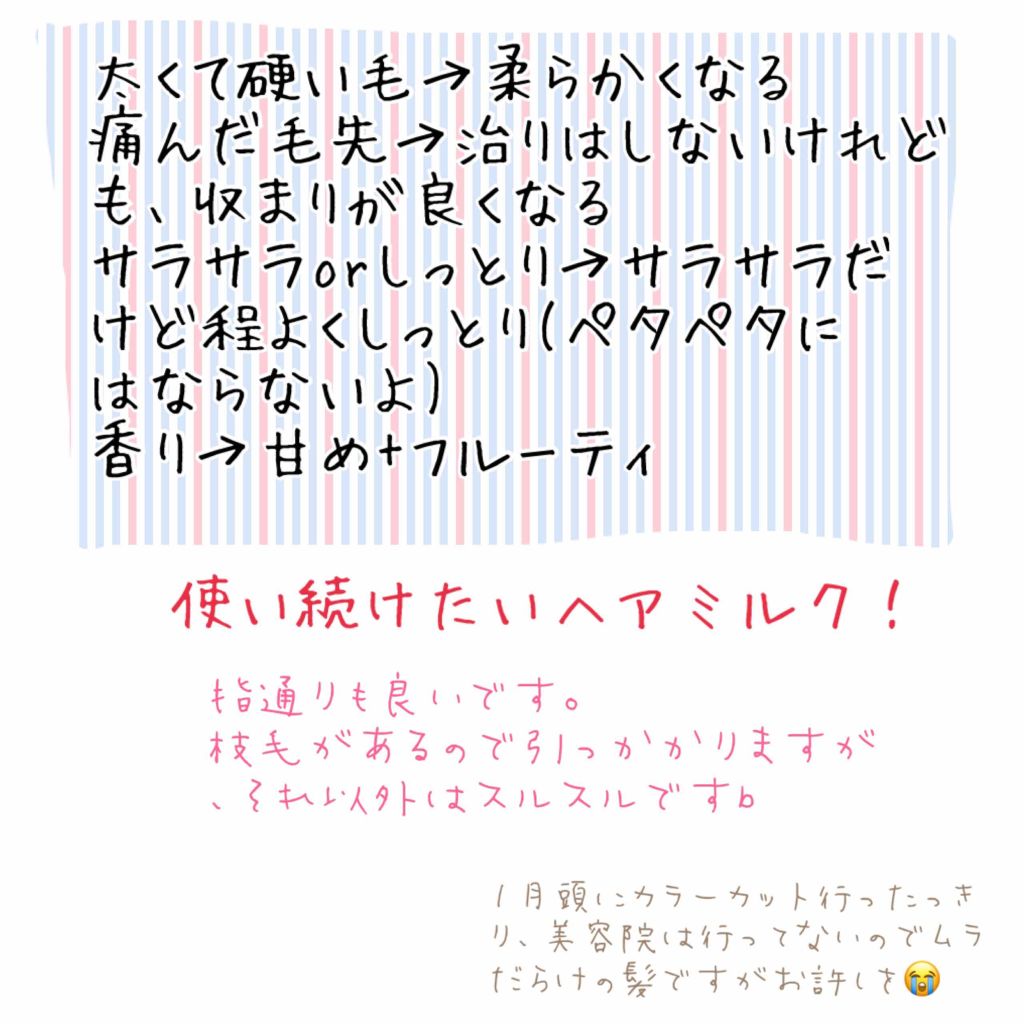 太くて硬い毛→柔らかくなる
痛んだ毛先→治りはしないけれど
も、収まりが良くなる
サラサラorしっとり→サラサラだ
けど程よくしっとり(ペタペタに
はならないよ)
香り→甘め+フルーティ
使い続けたいヘアミルク！
指通りも良いです。
枝毛があるので引っかかりますが
、それ以外はスルスルですb
1月頭にカラーカット行ったっき
り、美容院は行ってないのでムラ
だらけの髪ですがお許しを😭